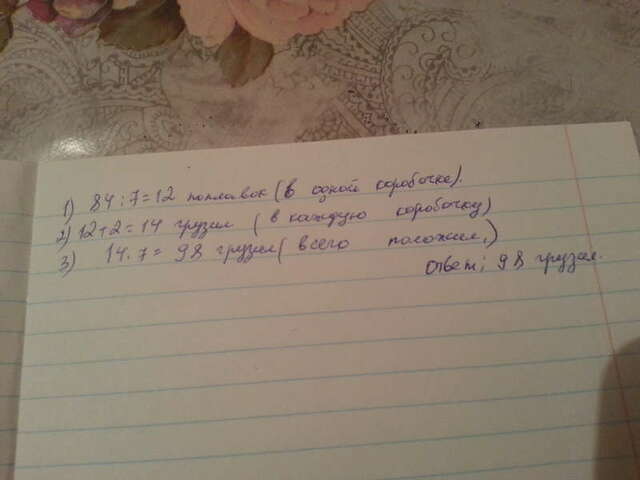 1) 84:7=12 поплавок (в одной коробочке).
2) 12+2=14 грузил (в каждую коробочку)
3) 14.7= 98 грузил (всего положил.)
ответ; 98 грузил.